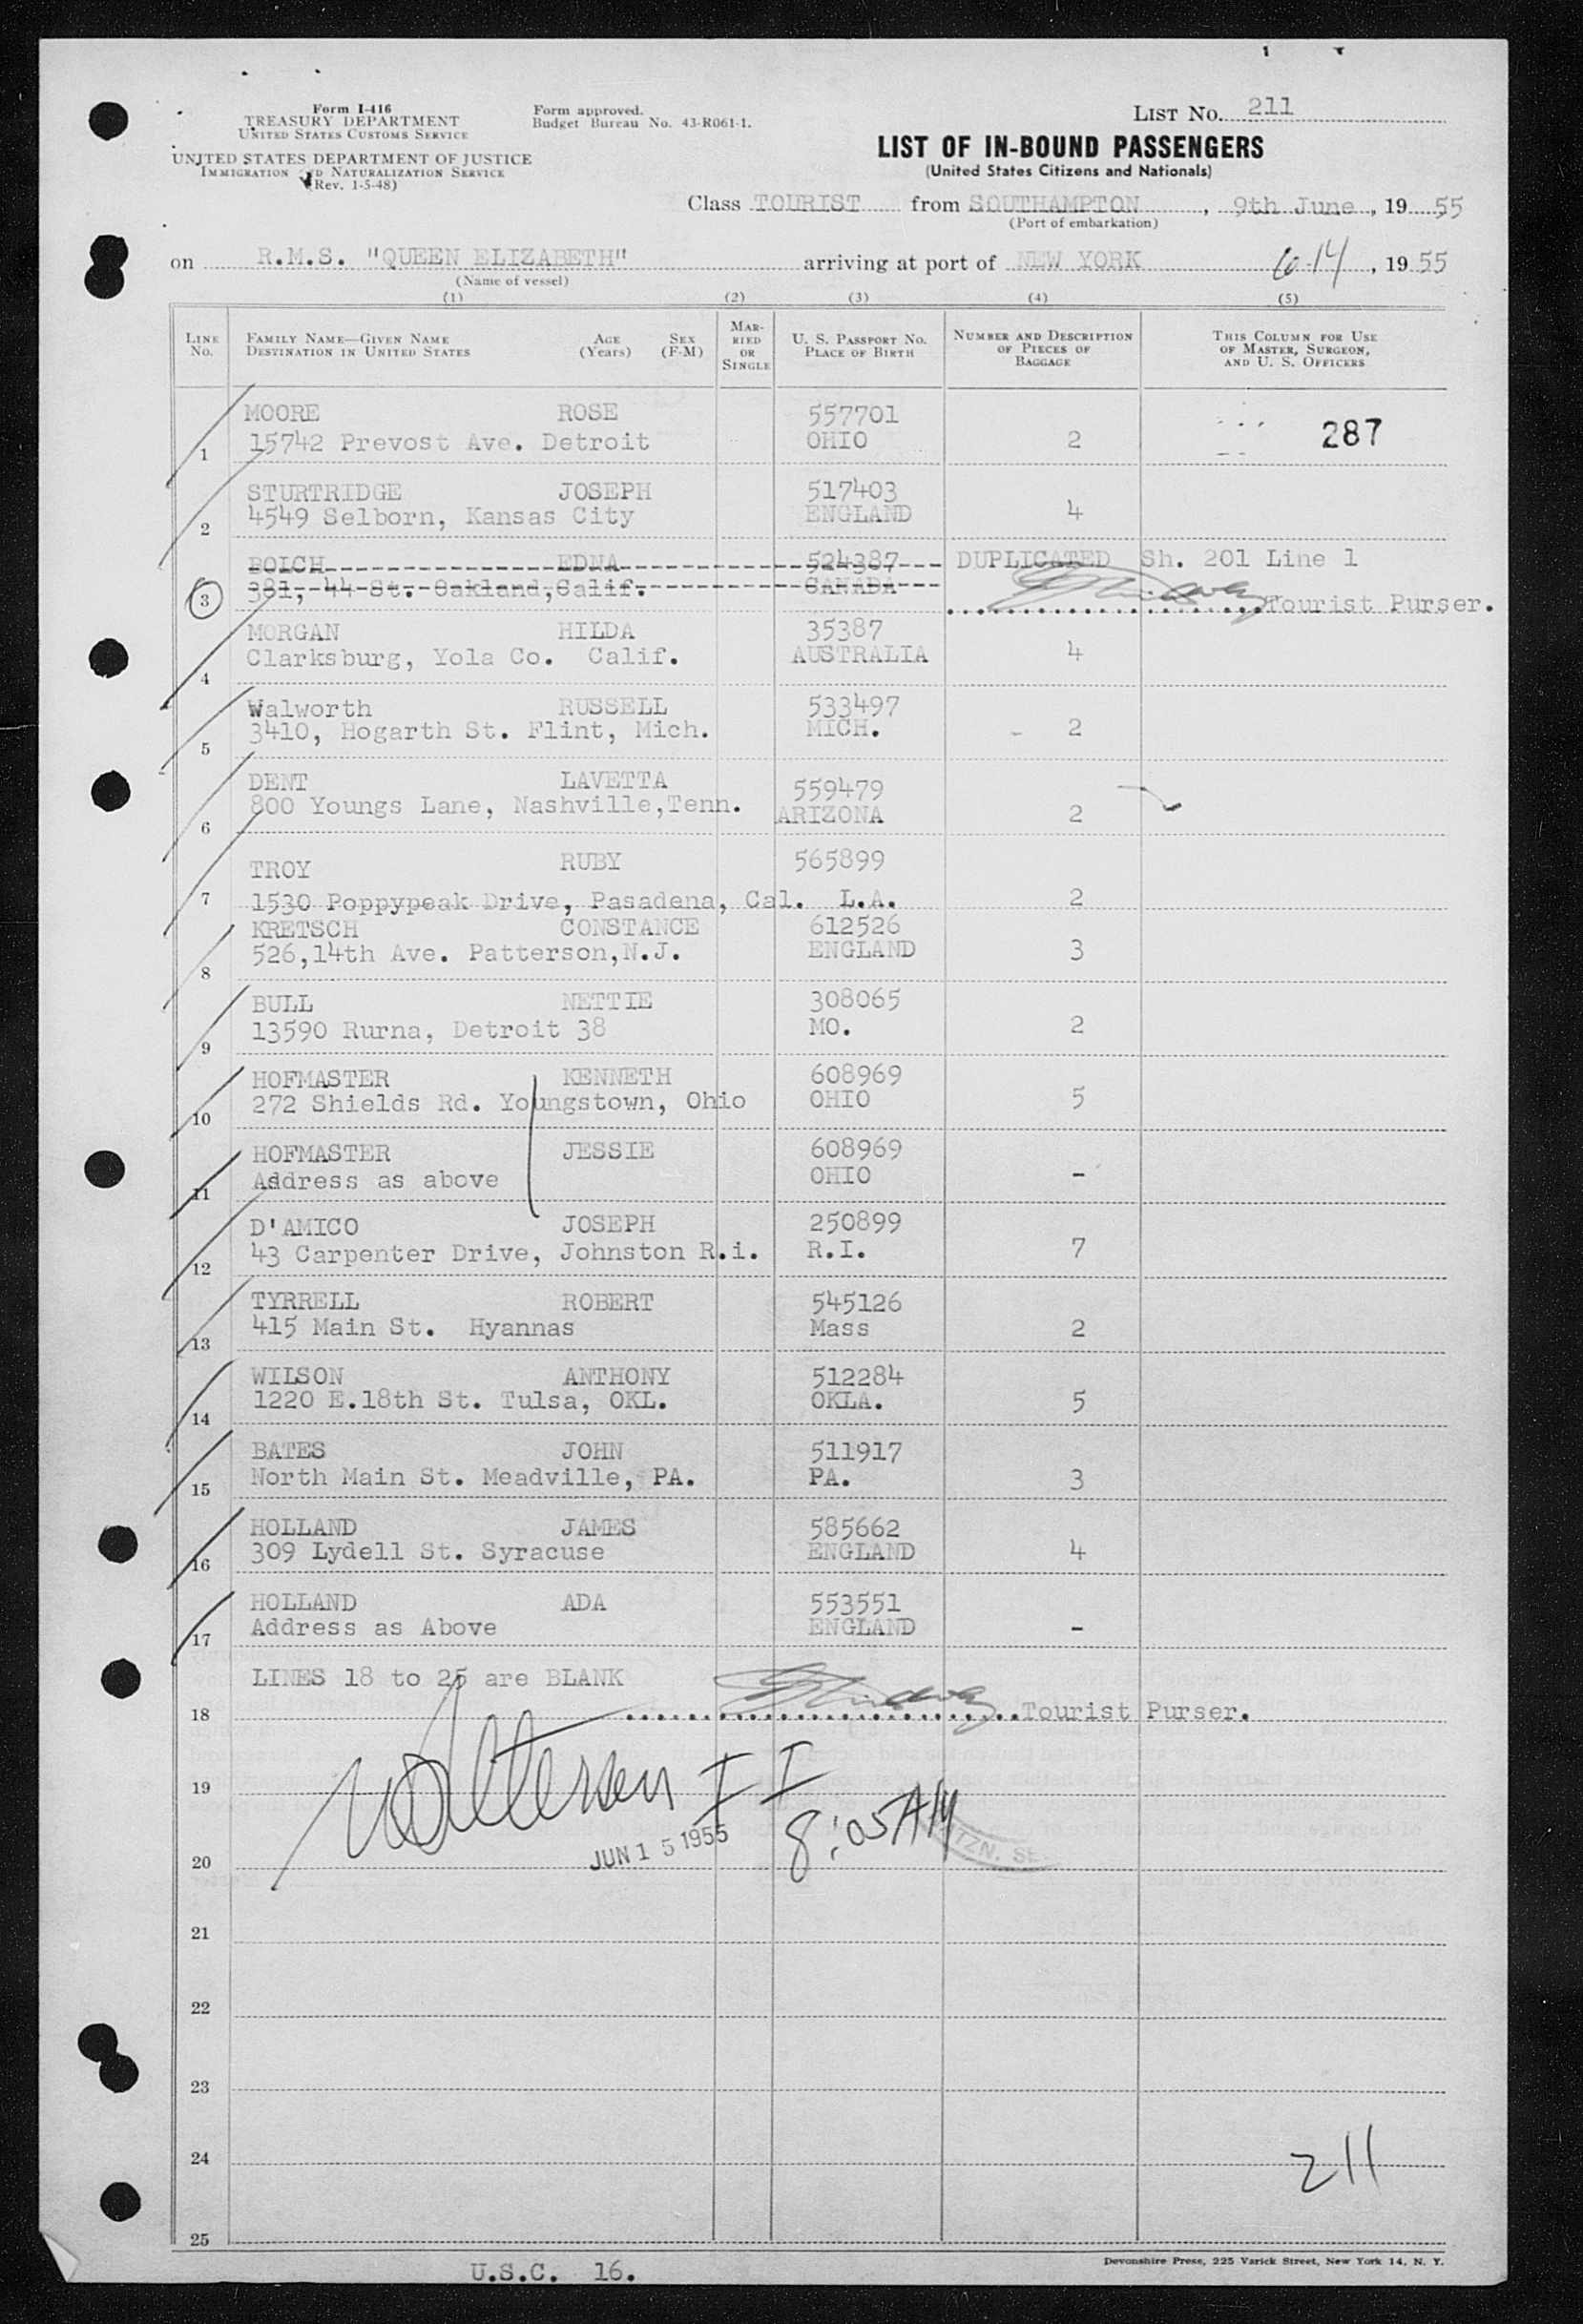 Form I-416
TREASURY DEPARTMENT
UNITED STATES CUSTOMS SERVICE
UNITED STATES DEPARTMENT OF JUSTICE
IMMIGRATION AND NATURALIZATION SERVICE
(Rev. 1-5-48)
Form approved.
Budget Bureau No. 43-R061-1.
LIST No. 211
LIST OF IN-BOUND PASSENGERS
(United States Citizens and Nationals)
Class TOURIST from SOUTHAMPTON, 9th June, 1955
(Port of embarkation)
on R.M.S. "QUEEN ELIZABETH" arriving at port of NEW YORK 6-14, 1955
(Name of vessel)
(1) (2) (3) (4) (5)
LINE No. FAMILY NAME—GIVEN NAME DESTINATION IN UNITED STATES AGE (Years) SEX (F-M) MARRIED OR SINGLE U. S. PASSPORT No. PLACE OF BIRTH NUMBER AND DESCRIPTION OF PIECES OF BAGGAGE THIS COLUMN FOR USE OF MASTER, SURGEON, AND U. S. OFFICERS
MOORE ROSE 557701
1 15742 Prevost Ave. Detroit OHIO 2 287
STURTRIDGE JOSEPH 517403
2 4549 Selborn, Kansas City ENGLAND 4
BOICH EDNA 524387 DUPLICATED Sh. 201 Line 1
3 381, 44 St. Oakland, Calif. CANADA Tourist Purser.
MORGAN HILDA 35387
4 Clarksburg, Yola Co. Calif. AUSTRALIA 4
Walworth RUSSELL 533497
5 3410, Hogarth St. Flint, Mich. MICH. 2
DENT LAVETTA 559479
6 800 Youngs Lane, Nashville,Tenn. ARIZONA 2
TROY RUBY 565899
7 1530 Poppypeak Drive, Pasadena, Cal. L.A. 2
KRETSCH CONSTANCE 612526
8 526,14th Ave. Patterson,N.J. ENGLAND 3
BULL NETTIE 308065
9 13590 Rurna, Detroit 38 MO. 2
HOFMASTER KENNETH 608969
10 272 Shields Rd. Youngstown, Ohio OHIO 5
HOFMASTER JESSIE 608969
11 Address as above OHIO -
D'AMICO JOSEPH 250899
12 43 Carpenter Drive, Johnston R.i. R.I. 7
TYRRELL ROBERT 545126
13 415 Main St. Hyannas Mass 2
WILSON ANTHONY 512284
14 1220 E.18th St. Tulsa, OKL. OKLA. 5
BATES JOHN 511917
15 North Main St. Meadville, PA. PA. 3
HOLLAND JAMES 585662
16 309 Lydell St. Syracuse ENGLAND 4
HOLLAND ADA 553551
17 Address as Above ENGLAND -
LINES 18 to 25 are BLANK
18 Tourist Purser.
19
JUN 15 1955 8:05 AM
20
21
22
23
24 211
25
Devonshire Press, 225 Varick Street, New York 14, N. Y.
U.S.C. 16.